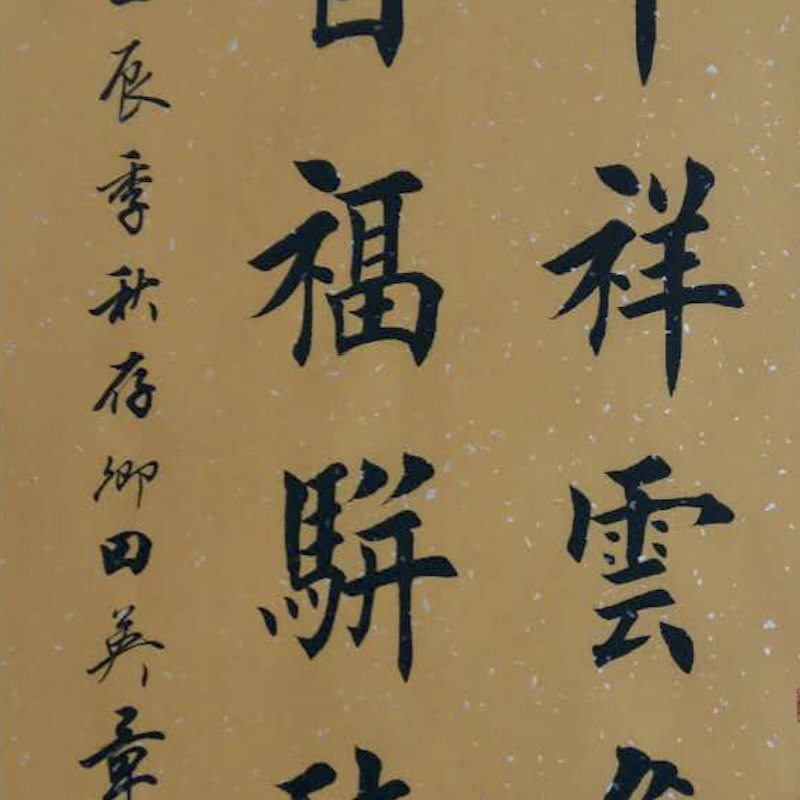 祥雲
福駢
辰季秋存卿田英章